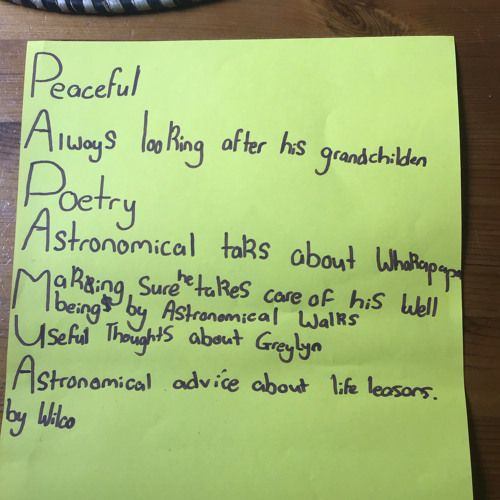 Peaceful
Always looking after his grandchilden
Poetry
Astronomical taks about Whakapapa
Making Sure he takes care of his Well
beings by Astronomical Walks
Useful Thoughts about Greylyn
Astronomical advice about life leasors.
by Wilco